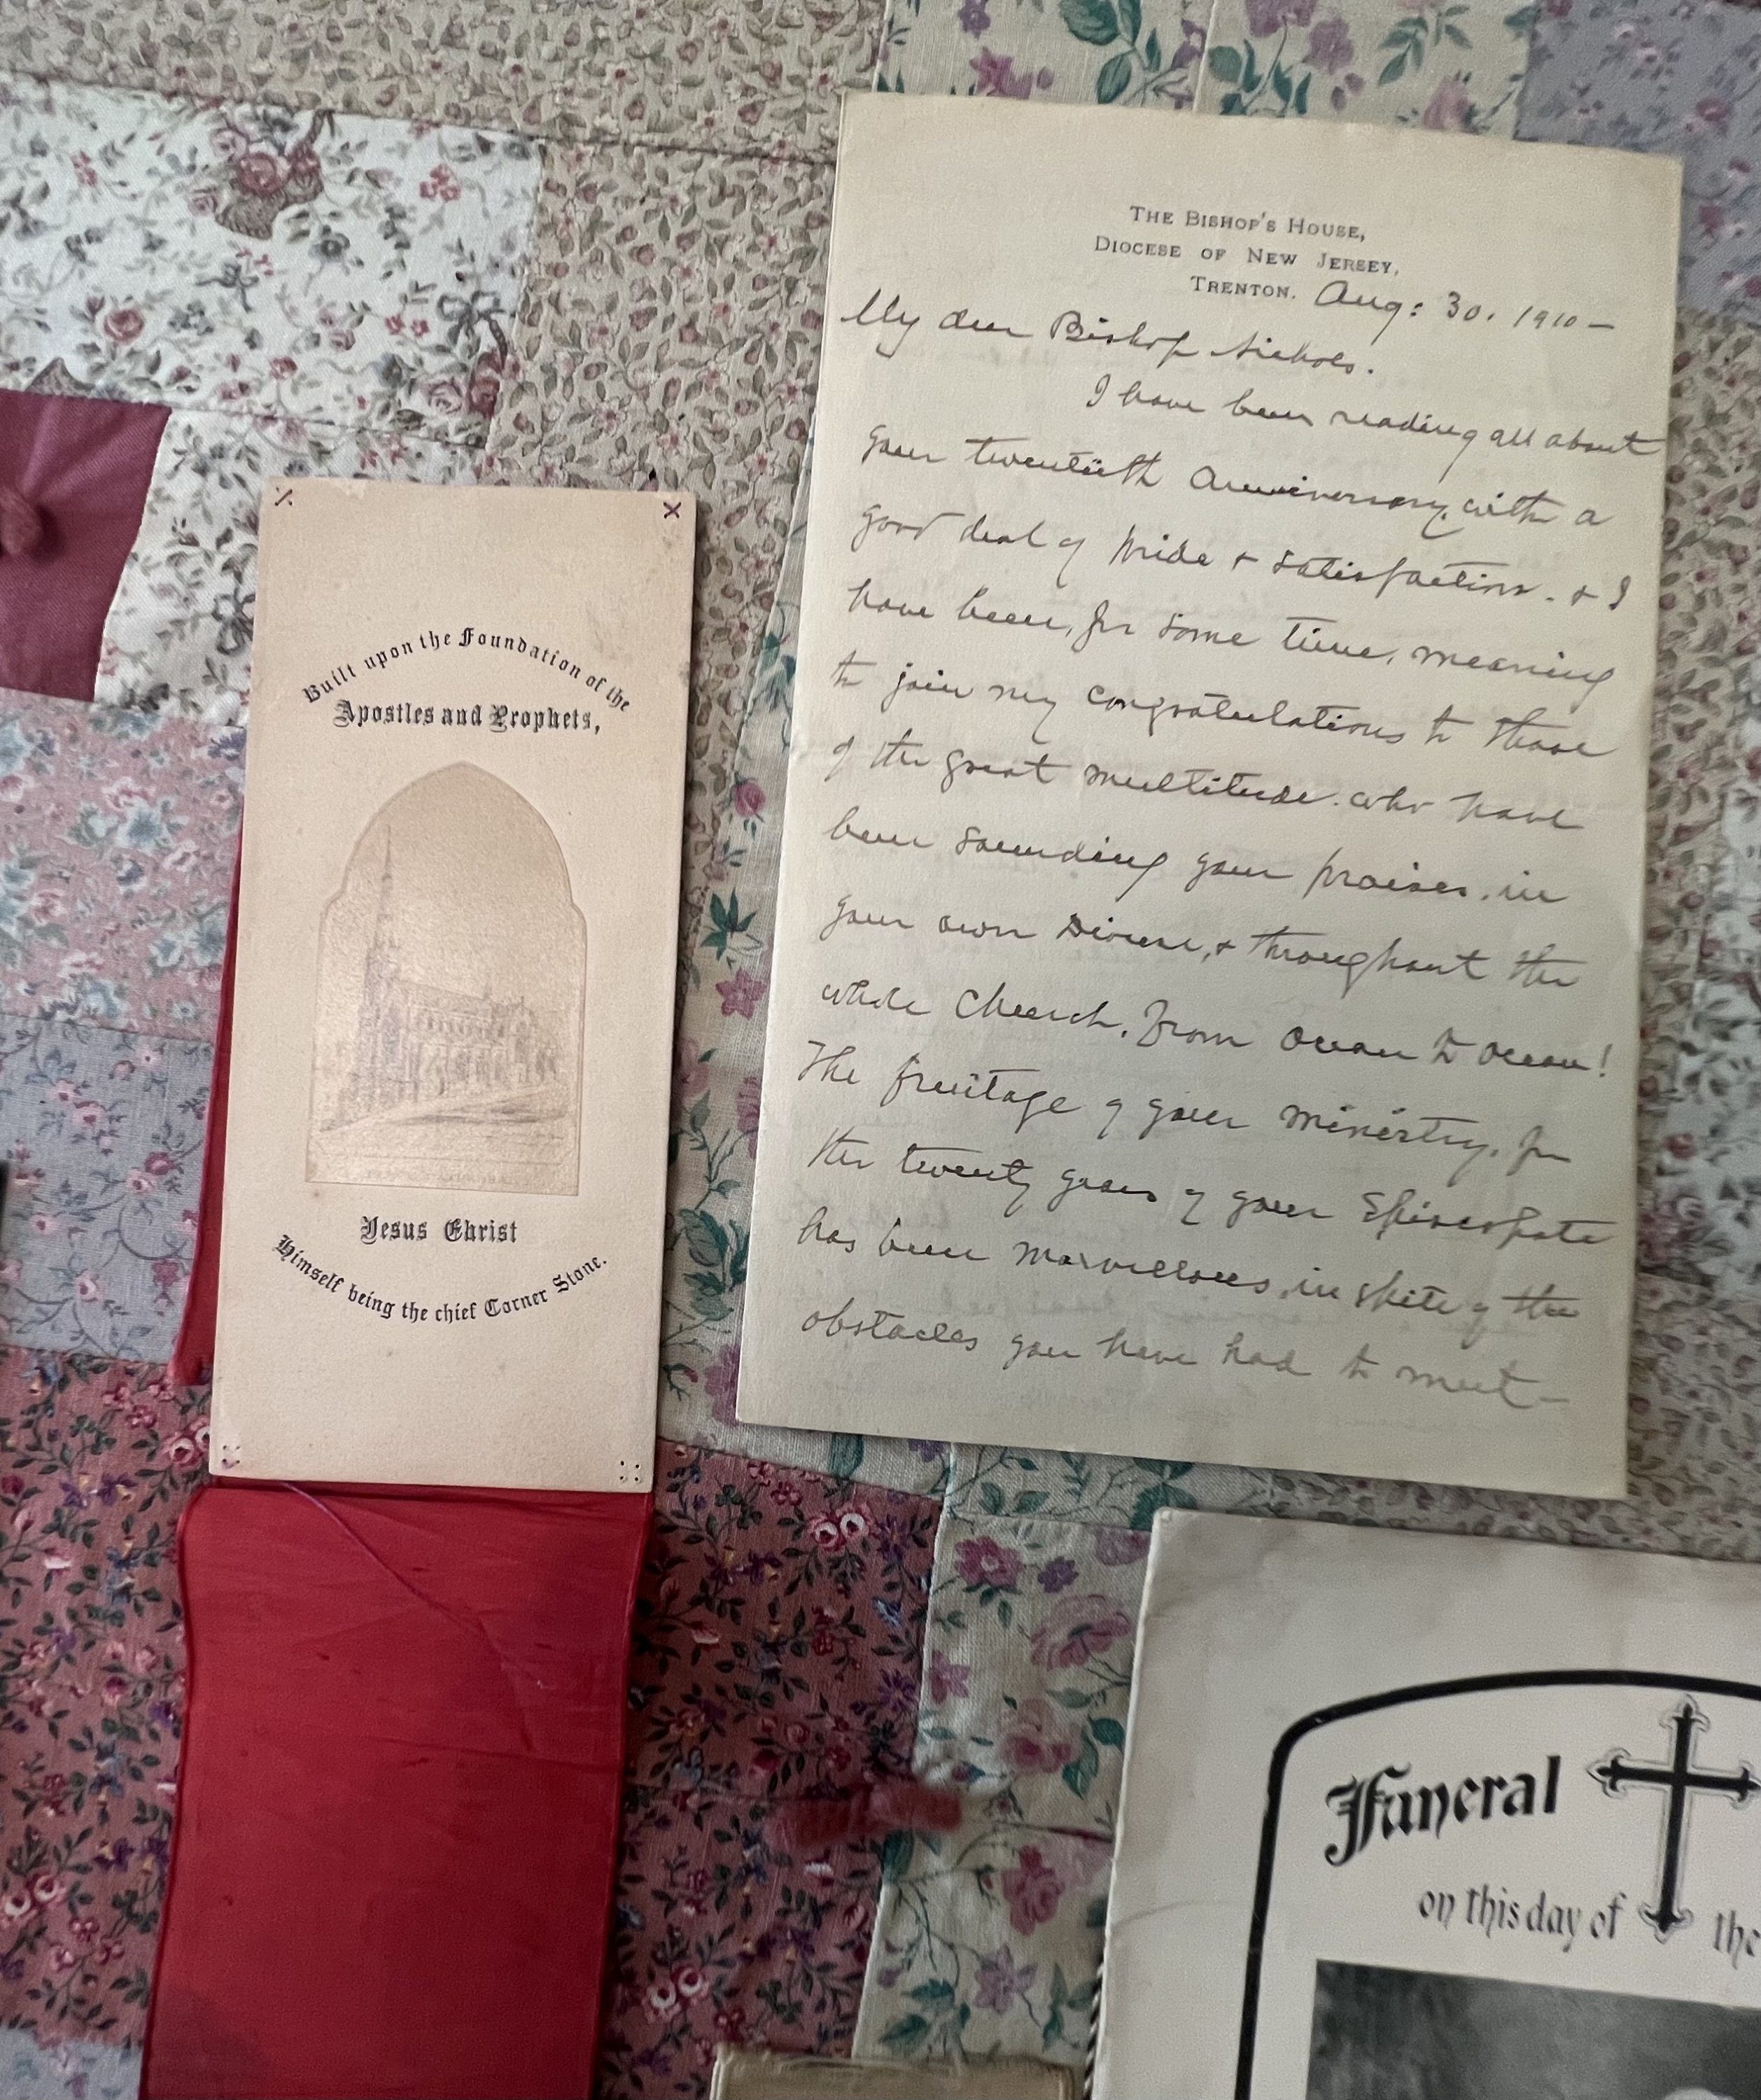 Built upon the Foundation of the
Apostles and Prophets,
Jesus Christ
Himself being the chief Corner Stone.
THE BISHOP'S HOUSE,
DIOCESE OF NEW JERSEY,
TRENTON. Aug: 30. 1910 –
My dear Bishop Nichols.
I have been reading all about
your twentieth Anniversary, with a
good deal of pride & satisfaction. & I
have been, for some time, meaning
to join my congratulations to those
of the great multitude. who have
been sounding your praises, in
your own Diocese, & throughout the
whole Church. From Ocean to Ocean!
The fruitage of your ministry, for
the twenty years of your Episcopate
has been marvellous, in spite of the
obstacles you have had to meet –
Funeral
on this day of the